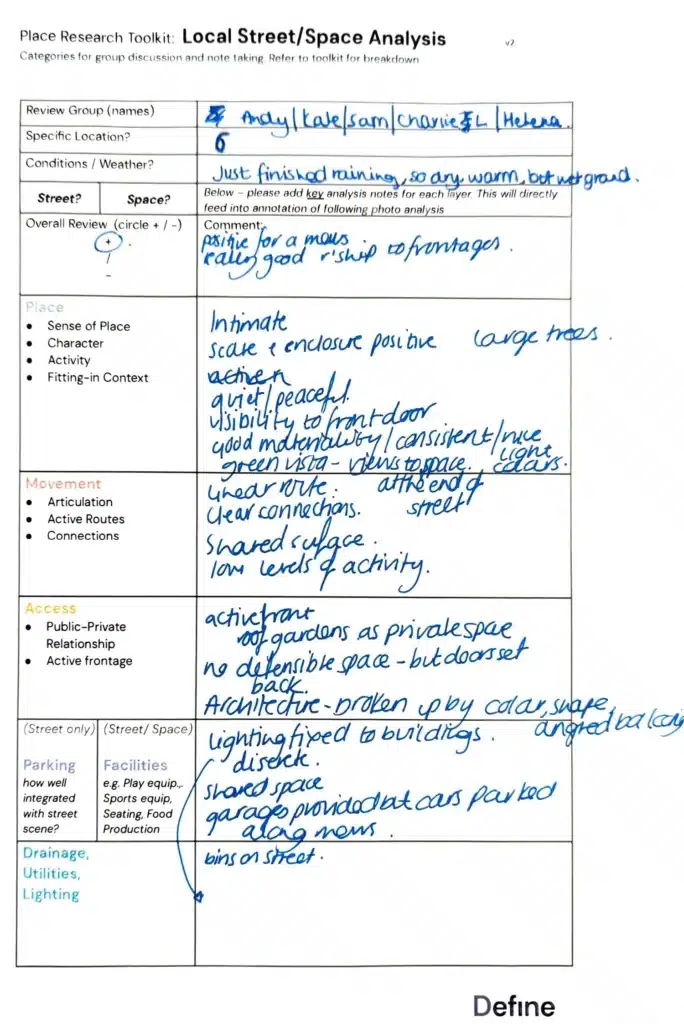 Place Research Toolkit: Local Street/Space Analysis v2
Categories for group discussion and note taking. Refer to toolkit for breakdown
Review Group (names)
Andy / Kate / Sam / Charlie L / Helena.
Specific Location?
6
Conditions / Weather?
Just finished raining, so dry warm, but wet ground.
Street?
Space?
Below – please add key analysis notes for each layer. This will directly
feed into annotation of following photo analysis
Overall Review (circle + / -)
+
/
-
Comment:
positive for a mews
really good r'ship to frontages.
Place
• Sense of Place
• Character
• Activity
• Fitting-in Context
Intimate
scale + enclosure positive large trees.
quiet/peaceful.
visibility to front door
good materiality / consistent / nice
light
green vista - views to space. colours.
at the end of
street
Movement
• Articulation
• Active Routes
• Connections
linear route.
clear connections.
shared surface.
low levels of activity.
Access
• Public-Private
Relationship
• Active frontage
active front
roof gardens as private space
no defensible space - but doors set
back.
Architecture - broken up by color, shape,
angled balcony
(Street only)
Parking
how well
integrated
with street
scene?
(Street/ Space)
Facilities
e.g. Play equip.,
Sports equip,
Seating, Food
Production
Lighting fixed to buildings.
shared space
garages provided but cars parked
along mews.
Drainage,
Utilities,
Lighting
bins on street.
Define